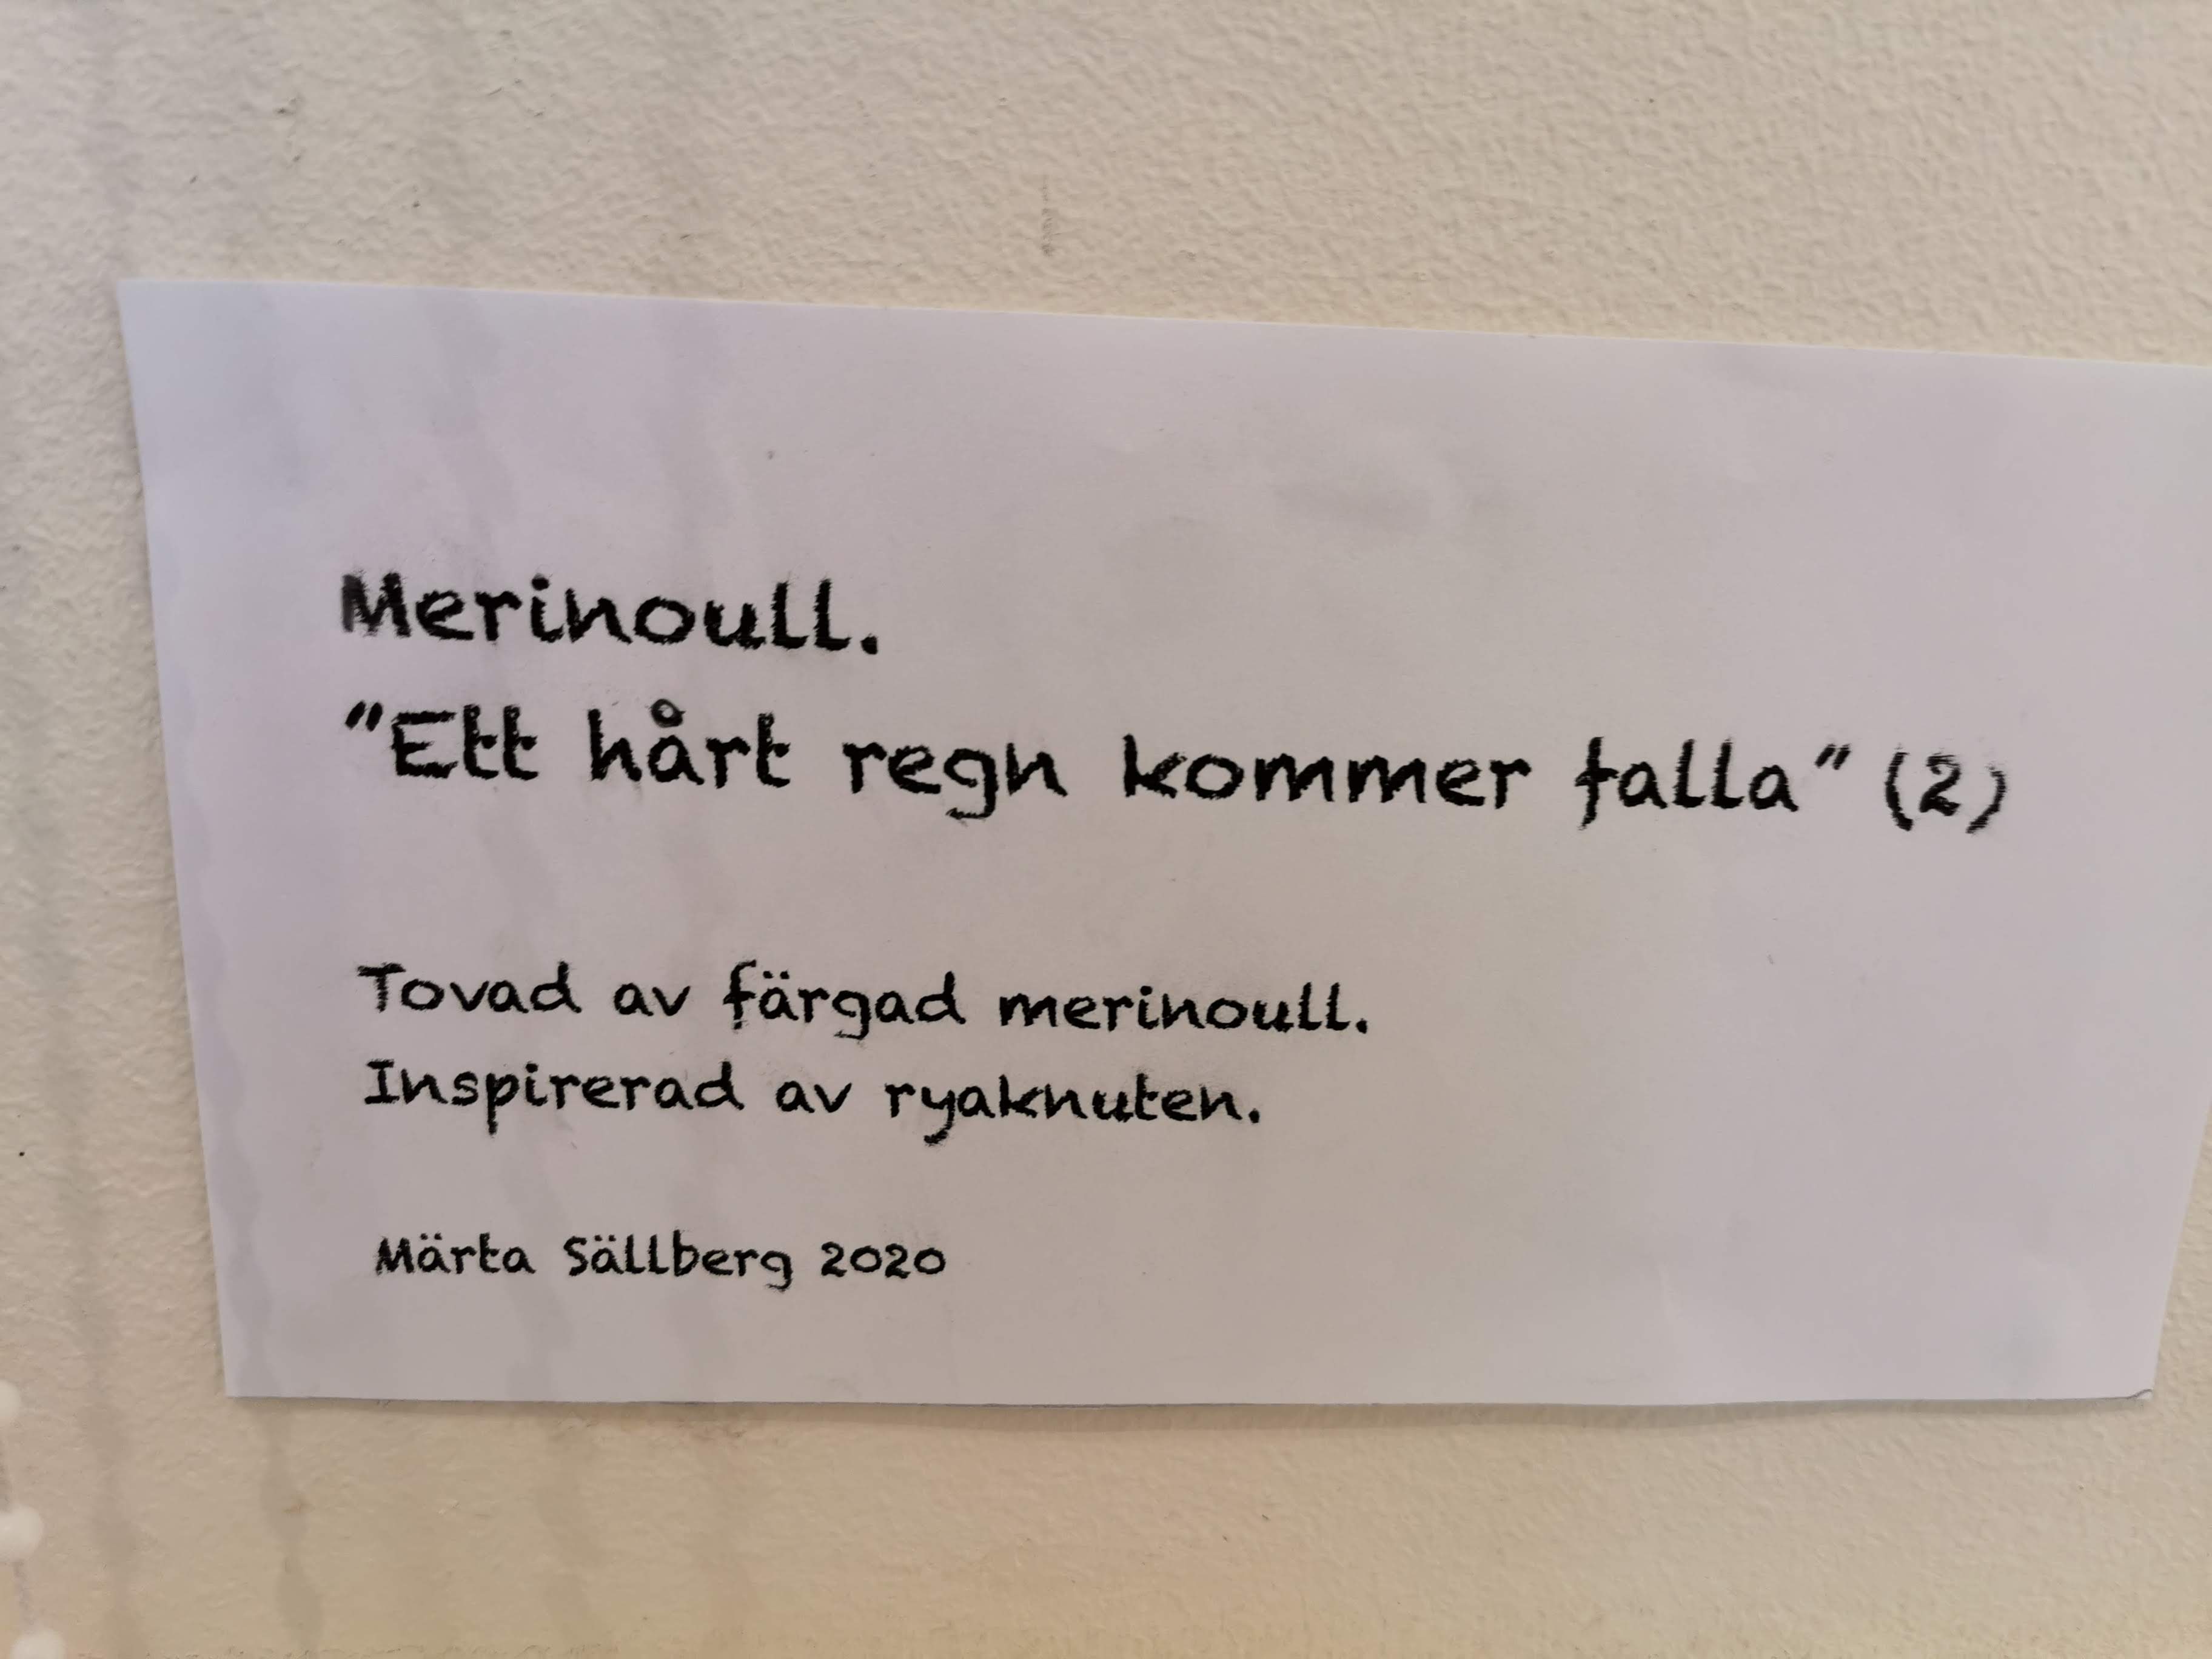 Merinoull.
"Ett hårt regn kommer falla" (2)
Tovad av färgad merinoull.
Inspirerad av ryaknuten.
Märta Sällberg 2020